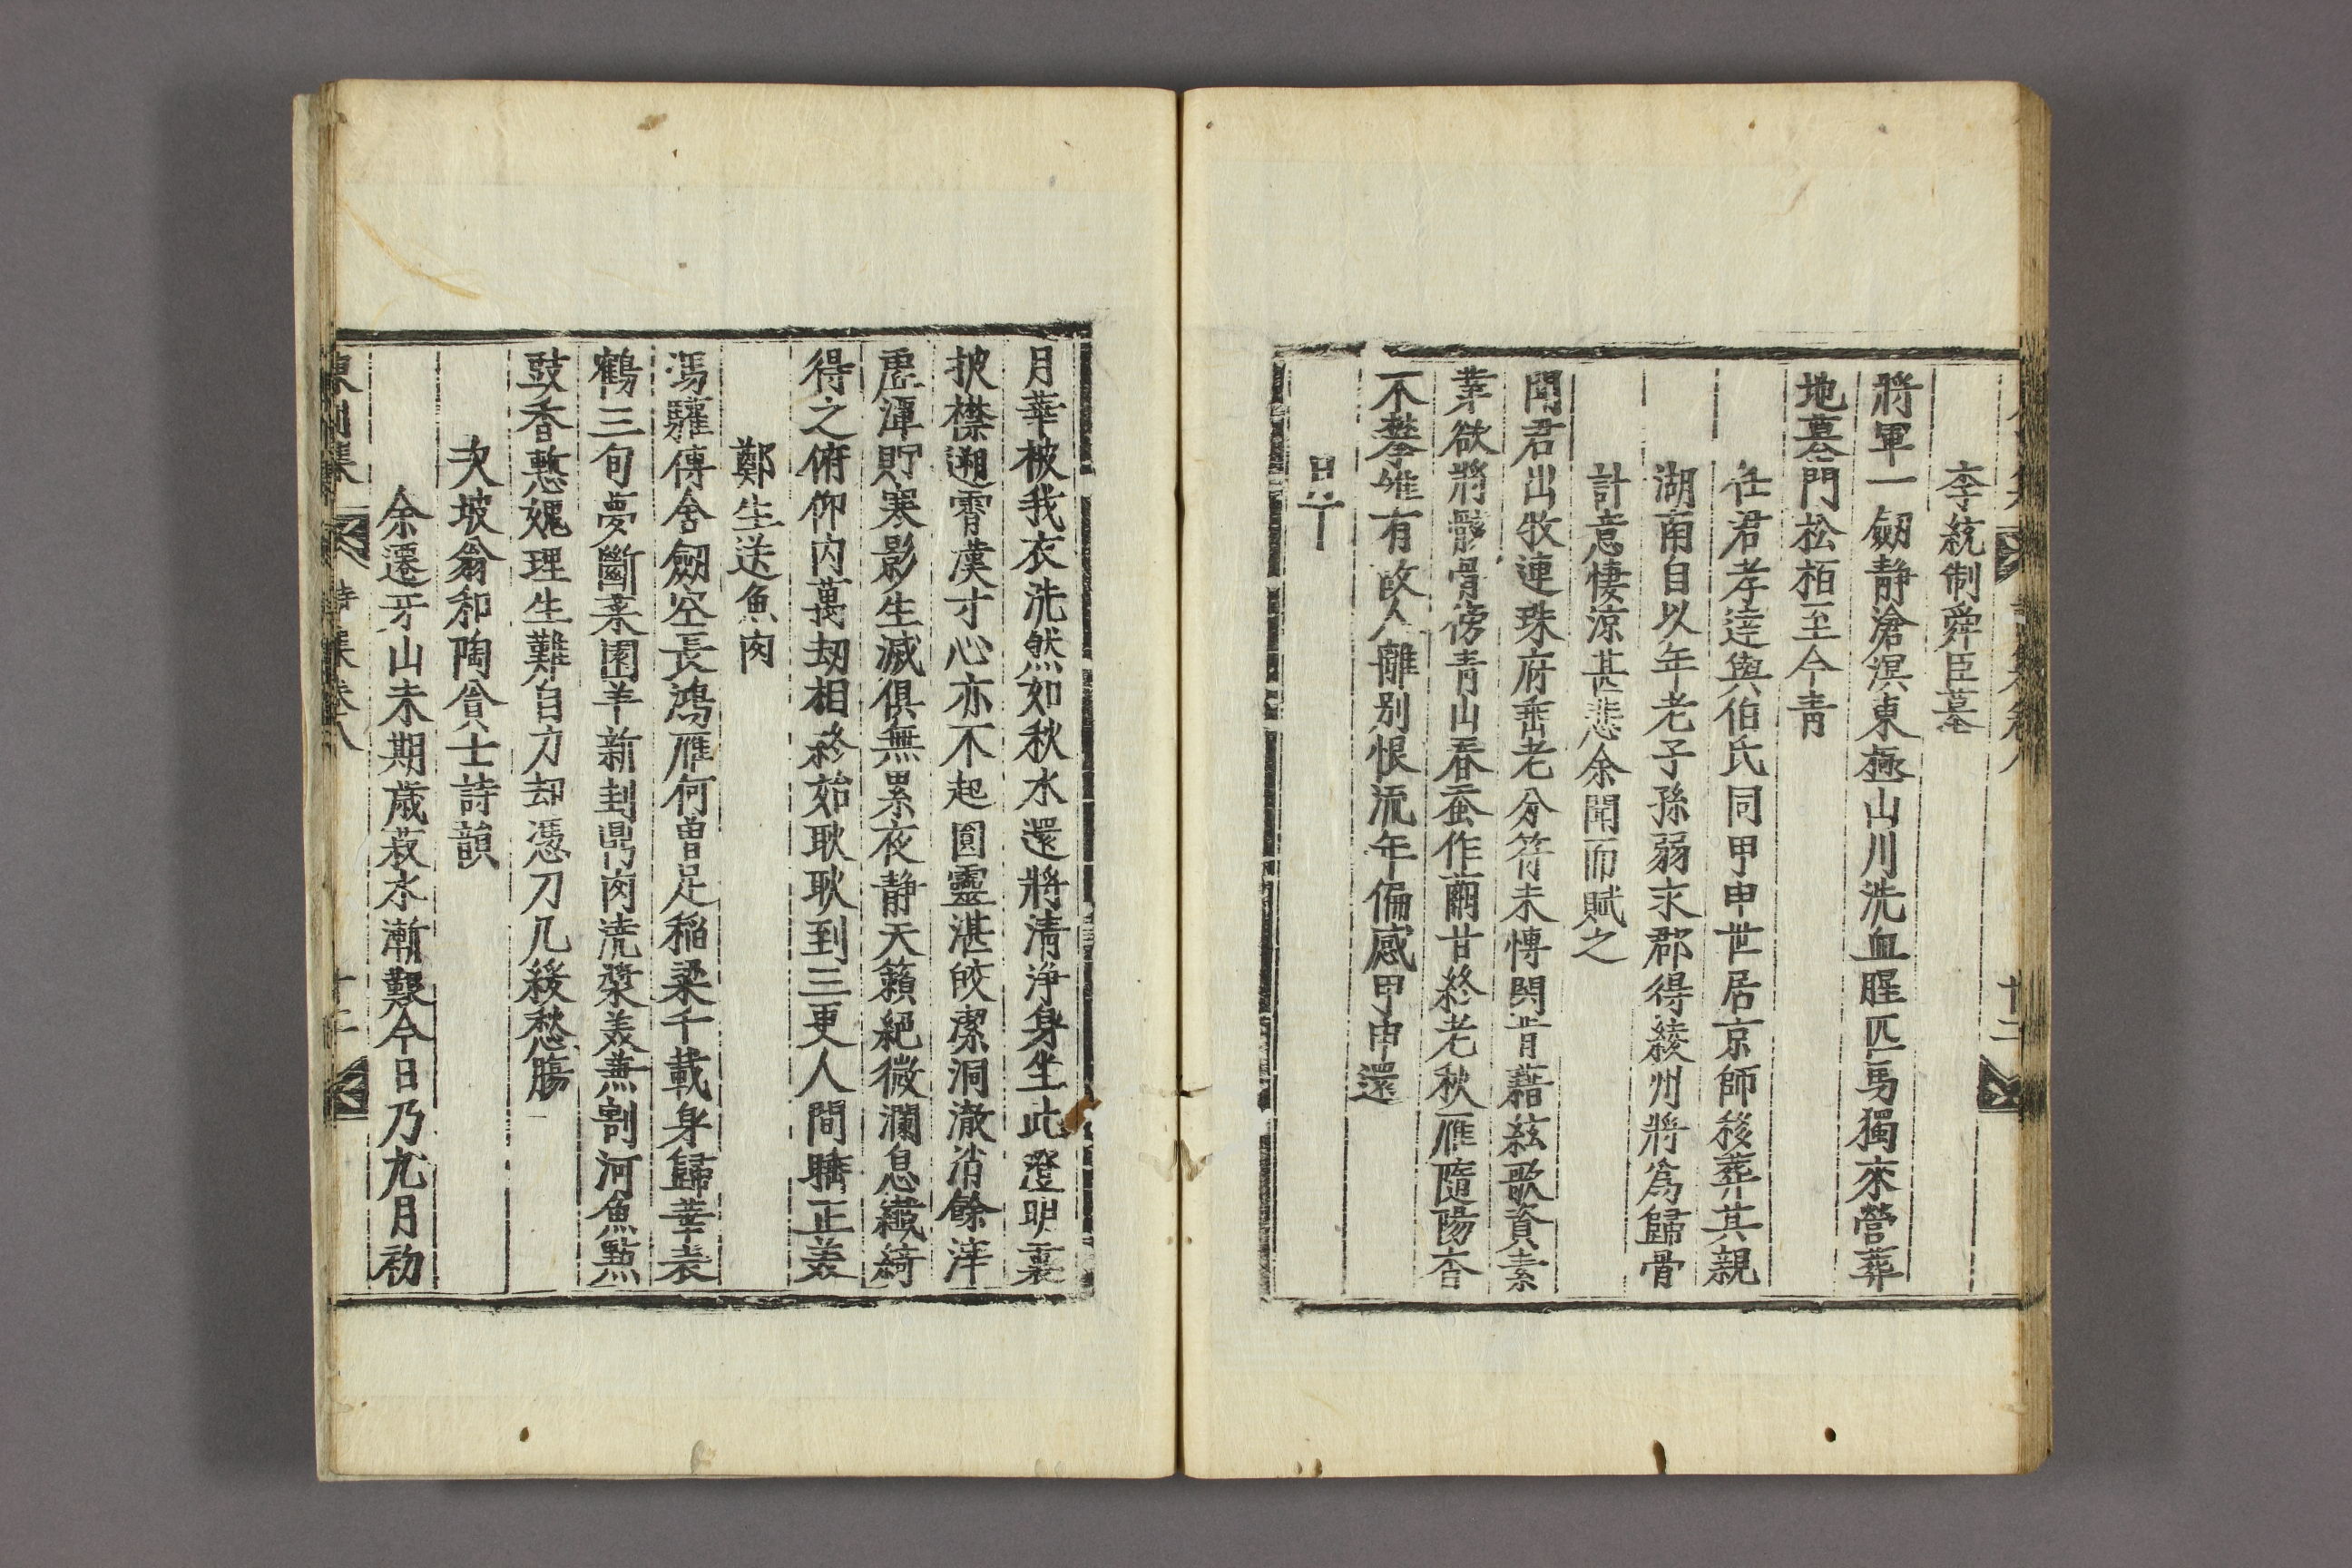 李統制舜臣墓
將軍一劒靜滄溟東極山川洗血腥匹馬獨來營葬
地墓門松栢至今青
任君孝達與伯氏同甲申世居京師移葬其親
湖南自以年老子孫弱求郡得綾州將爲歸骨
計意悽凉甚悲余聞而賦之
聞君出牧連珠府垂老分符未愽閑肯藉絃歌資素
業欲將骸骨傍青山春蚕作繭甘終老秋鴈隨陽杳
不攀唯有故人離別恨流年偏感甲申還
月華被我衣洗然如秋水還將清淨身坐此澄明裏
披襟遡霄漢寸心亦不起圓靈湛皎潔洞澈消餘滓
虛潭貯寒影生滅俱無累夜靜天籟絕微瀾息纖綺
得之俯仰內萬劫相終始耿耿到三更人間睡正美
鄭生送魚肉
馮驩傳舍劒空長鴻鴈何曾足稻粱千載身歸華表
鶴三旬夢斷菜園羊新刲鼎肉流漿美兼割河魚點
豉香慙媿理生難自力却憑刀几緩愁膓
次坡翁和陶貧士詩韻
余遷牙山未期歲菽水漸艱今日乃九月初
東州集 詩集卷八 十二